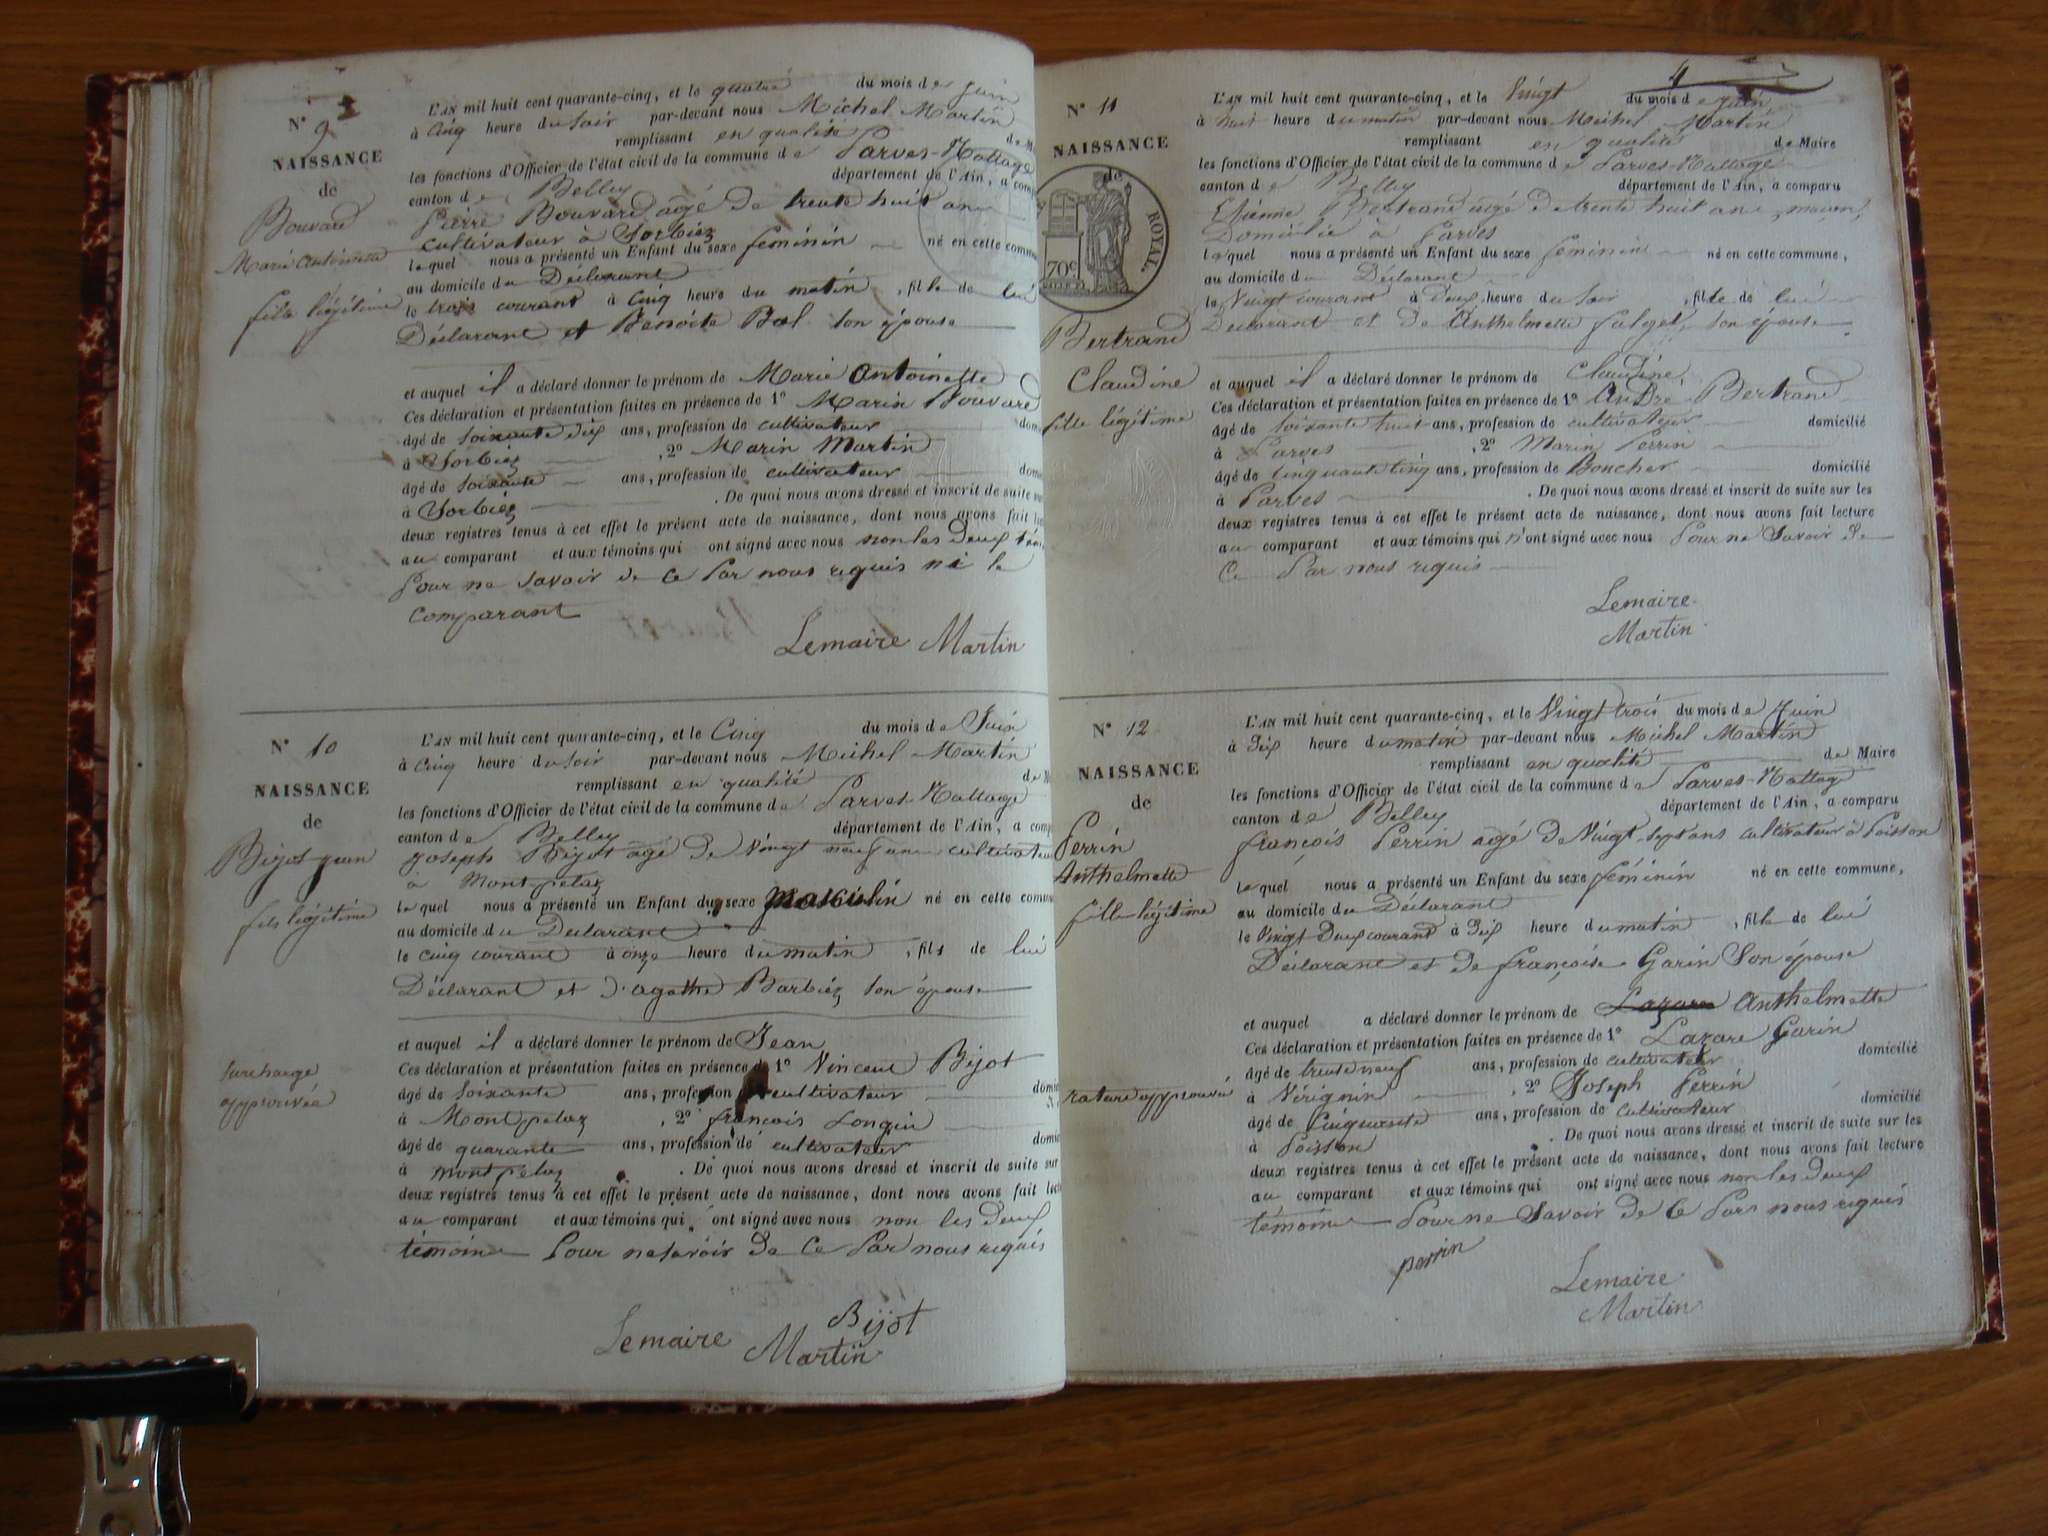 N° 9
NAISSANCE
de
Bouvard
Marie Antoinette
fille légitime
L'AN mil huit cent quarante-cinq, et le quatre du mois de juin
à Cinq heure du Soir par-devant nous Michel Martin
remplissant en qualité de Ma
les fonctions d'Officier de l'état civil de la commune de Parves-Nattage
canton de Belley département de l'Ain, a comp
Pierre Bouvard agé de trente huit ans
cultivateur à Sorbiez
lequel nous a présenté un Enfant du sexe feminin né en cette commune
au domicile du Déclarant
le trois courant à Cinq heure du matin, fille de lui
Déclarant et Benoite Bal son épouse
et auquel il a déclaré donner le prénom de Marie Antoinette
Ces déclaration et présentation faites en présence de 1° Marin Bouvard
âgé de soixante dix ans, profession de cultivateur dom
à Sorbiez, 2° Marin Martin
âgé de soixante ans, profession de cultivateur dom
à Sorbiez. De quoi nous avons dressé et inscrit de suite sur
deux registres tenus à cet effet le présent acte de naissance, dont nous avons fait
au comparant et aux témoins qui ont signé avec nous non les Deux tém
Pour ne savoir de ce Par nous requis ni le
comparant
Lemaire Martin
N° 10
NAISSANCE
de
Bijot jean
fils légitime
surcharge
approuvée
L'AN mil huit cent quarante-cinq, et le Cinq du mois de Juin
à Cinq heure du soir par-devant nous Michel Martin
remplissant en qualité de M
les fonctions d'Officier de l'état civil de la commune de Parves-Nattage
canton de Belley département de l'Ain, a comp
Joseph Bijot agé de Vingt neuf ans cultivateur
à Montpelaz
lequel nous a présenté un Enfant du sexe masculin né en cette commu
au domicile du Déclarant
le cinq courant à onze heure du matin, fils de lui
Déclarant et d'agathe Barbiez son épouse
et auquel il a déclaré donner le prénom de Jean
Ces déclaration et présentation faites en présence de 1° Vincent Bijot
âgé de Soixante ans, profession de cultivateur domi
à Montpelaz, 2° françois Longin
âgé de quarante ans, profession de cultivateur domi
à montpelaz. De quoi nous avons dressé et inscrit de suite sur
deux registres tenus à cet effet le présent acte de naissance, dont nous avons fait lec
au comparant et aux témoins qui ont signé avec nous non les deux
témoins Pour ne savoir de ce Par nous requis
Bijot
Lemaire Martin
4
N° 11
NAISSANCE
de
ROYAL.
70c
Bertrand
Claudine
fille légitime
L'AN mil huit cent quarante-cinq, et le Vingt du mois de juin
à huit heure du matin par-devant nous Michel Martin
remplissant en qualité de Maire
les fonctions d'Officier de l'état civil de la commune de Parves-Nattage
canton de Belley département de l'Ain, a comparu
Etienne Bertrand agé de trente huit ans, macon,
Domicilié à Parves
lequel nous a présenté un Enfant du sexe feminin né en cette commune,
au domicile du Déclarant
le Vingt courant à Deux heure du Soir, fille de lui
Déclarant et de Anthelmette Falget, son épouse
et auquel il a déclaré donner le prénom de Claudine
Ces déclaration et présentation faites en présence de 1° André Bertrand
âgé de soixante huit ans, profession de cultivateur domicilié
à Parves, 2° Marin Perrin
âgé de Cinquante Cinq ans, profession de Boucher domicilié
à Parves. De quoi nous avons dressé et inscrit de suite sur les
deux registres tenus à cet effet le présent acte de naissance, dont nous avons fait lecture
au comparant et aux témoins qui n'ont signé avec nous Pour ne Savoir de
Ce Par nous requis
Lemaire
Martin
N° 12
NAISSANCE
de
Perrin
Anthelmette
fille légitime
rature approuvée
L'AN mil huit cent quarante-cinq, et le Vingt trois du mois de Juin
à Dix heure du matin par-devant nous Michel Martin
remplissant en qualité de Maire
les fonctions d'Officier de l'état civil de la commune de Parves-Nattag
canton de Belley département de l'Ain, a comparu
françois Perrin agé de Vingt-Sept ans cultivateur à Poisson
lequel nous a présenté un Enfant du sexe féminin né en cette commune,
au domicile du Déclarant
le Vingt Deux courant à Dix heure du matin, fille de lui
Déclarant et de françoise Garin Son épouse
et auquel a déclaré donner le prénom de Lazare Anthelmette
Ces déclaration et présentation faites en présence de 1° Lazare Garin
âgé de trente neuf ans, profession de cultivateur domicilié
à Vérignin, 2° Joseph Perrin
âgé de Cinquante ans, profession de cultivateur domicilié
à Poisson. De quoi nous avons dressé et inscrit de suite sur les
deux registres tenus à cet effet le présent acte de naissance, dont nous avons fait lecture
au comparant et aux témoins qui ont signé avec nous non les deux
témoins Pour ne Savoir de Ce Par nous requis
perrin
Lemaire
Martin